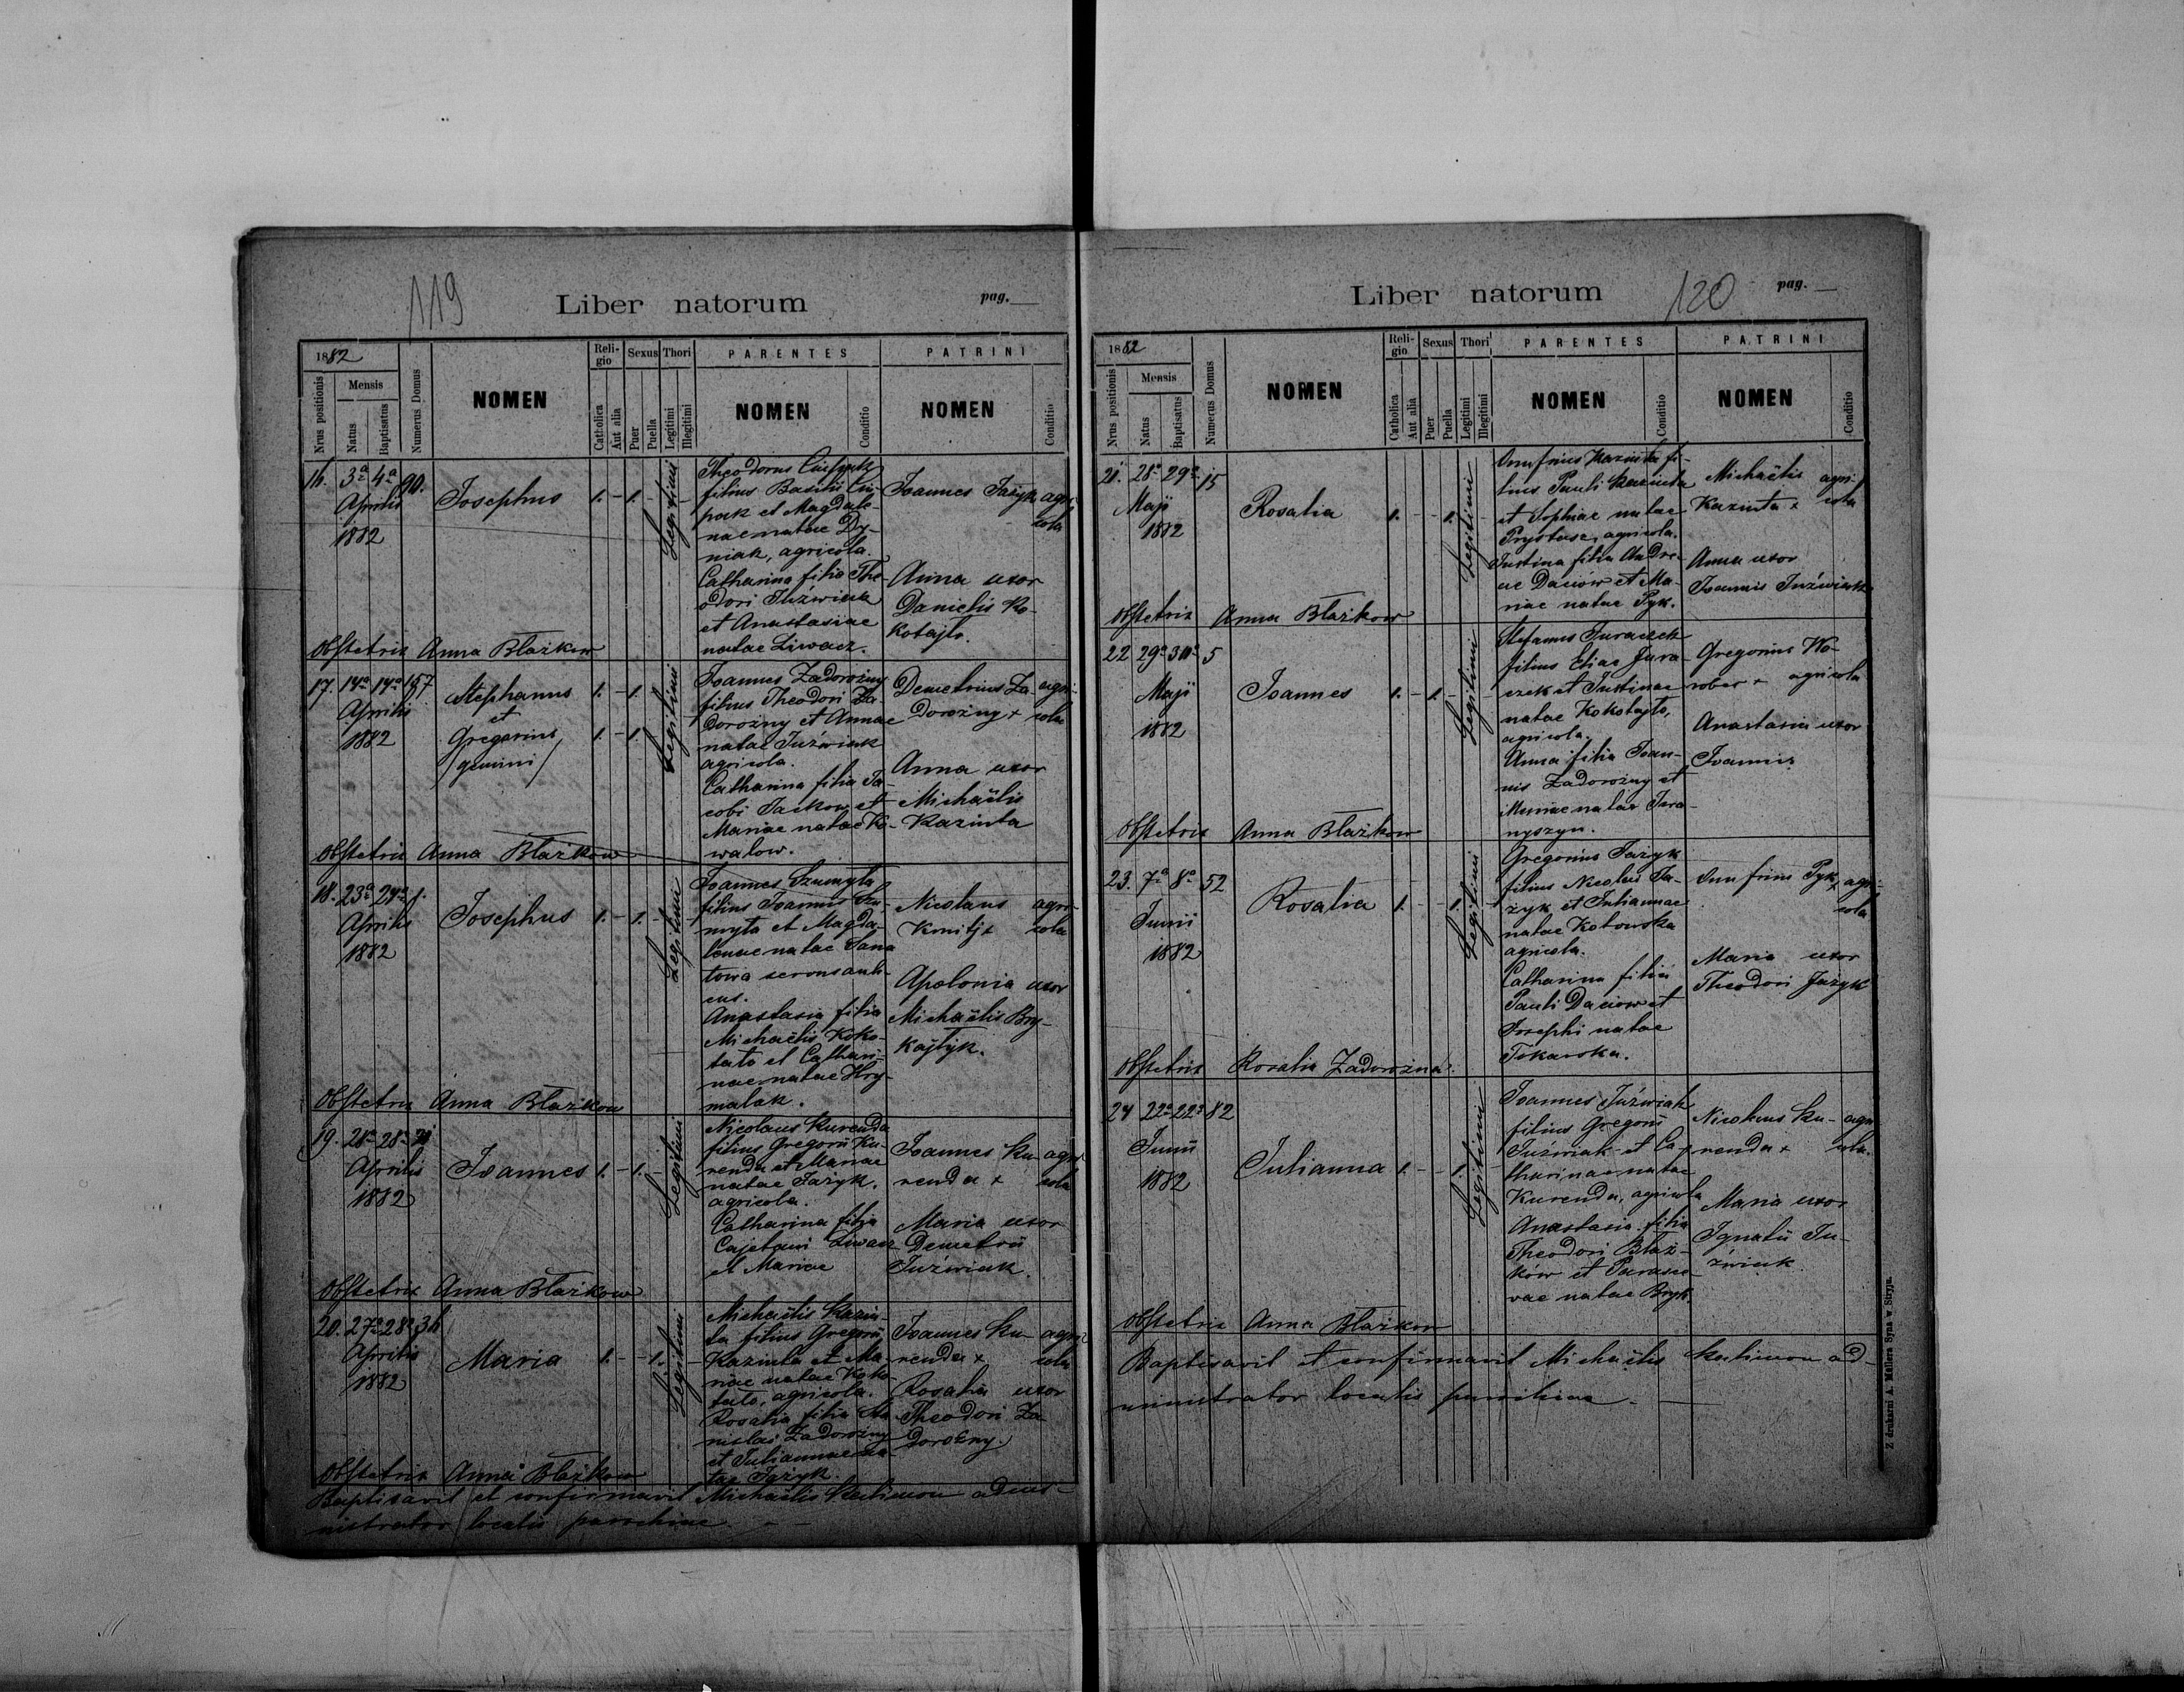 119
Liber natorum
pag.
1882
Nrus positionis
Mensis
Natus
Baptisatus
Numerus Domus
NOMEN
Religio
Catholica
Aut alia
Sexus
Puer
Puella
Thori
Legitimi
Illegitimi
PARENTES
NOMEN
Conditio
PATRINI
NOMEN
Conditio
16. 3a 4a 90.
Aprilis
1882
Josephus
1. - 1. -
Legitimi
Theodorus
filius Basilii
pak et Magdale-
nae natae Dy-
niak, agricola.
Catharina filia The-
odori Juźwiak
et Anastasiae
natae Liwacz.
Joannes Jażyk agri-
cola
Anna uxor
Danielis Ko-
kotajlo.
Obstetrix Anna Blażkow
17. 14a 14a
Aprilis
1882
Stephanus
et
Gregorius
/gemini/
1. - 1.
1. - 1.
Legitimi
Joannes Zadorożny
filius Theodori Za-
dorożny et Annae
natae Juźwiak
agricola.
Catharina filia Ja-
cobi Jackow et
Mariae natae Ko-
walow.
Demetrius Za- agri-
dorożny + cola
Anna uxor
Michaëlis
Kazinta
Obstetrix Anna Blażkow
18. 23a 24a
Aprilis
1882
Josephus
1. - 1. -
Legitimi
Joannes Szumyta
filius Joannis Szu-
myta et Magda-
lenae natae
Anastasia filia
Michaëlis Koko-
tato et Cathari-
nae natae Hry-
malak.
Nicolaus agri-
cola
Apolonia uxor
Michaëlis Bry-
Obstetrix Anna Blażkow
19. 28a 28a
Aprilis
1882
Joannes
1. - 1. -
Legitimi
Nicolaus Kurenda
filius Gregorii Ku-
renda et Mariae
natae Jażyk.
agricola.
Catharina filia
Cajetani Liwacz
et Mariae
Joannes Ku- agri-
renda + cola
Maria uxor
Demetrii
Juźwiak.
Obstetrix Anna Blażkow
20. 27a 28a 36
Aprilis
1882
Maria
1. - - 1.
Legitimi
Michaëlis Kazin-
ta filius Gregorii
Kazinta et Ma-
riae natae Koko-
tato, agricola.
Rosalia filia Sta-
nislai Zadorożny
et Juliannae na-
tae Jażyk.
Joannes Ku- agri-
renda + cola
Rosalia uxor
Theodori Za-
dorożny.
Obstetrix Anna Blażkow
Baptisavit et confirmavit Michaëlis Kalimon admi-
nistrator localis parochiae. -
Liber natorum
120
pag.
1882
Nrus positionis
Mensis
Natus
Baptisatus
Numerus Domus
NOMEN
Religio
Catholica
Aut alia
Sexus
Puer
Puella
Thori
Legitimi
Illegitimi
PARENTES
NOMEN
Conditio
PATRINI
NOMEN
Conditio
21. 28a 29a 15
Maji
1882
Rosalia
1. - - 1.
Legitimi
Onufrius Kazinta fi-
lius Pauli Kazinta
et Sophiae natae
agricola.
Justina filia Andre-
ae Daciów et Ma-
riae natae Pyk.
Michaëlis agri-
Kazinta + cola
Anna uxor
Joannis Juźwiak
Obstetrix Anna Blażkow
22 29a 30a 5
Maji
1882
Joannes
1. - 1. -
Legitimi
Stefanus Juraczek
filius Eliae Jura-
czek et Justinae
natae Kokotajlo,
agricola.
Anna filia Joan-
nis Zadorożny et
Mariae natae
Gregorius Wo-
rober + agricola
Anastasia uxor
Joannis
Obstetrix Anna Blażkow
23. 7a 8a 52
Junii
1882
Rosalia
1. - - 1.
Legitimi
Gregorius Jażyk
filius Nicolai Ja-
żyk et Juliannae
natae Kotowska
agricola.
Catharina filia
Pauli Daciow et
Josephi natae
Tokarska.
Onufrius Pyk + agri-
cola
Maria uxor
Theodori Jażyk
Obstetrix Rosalia Zadorożna.
24 22a 22a 82
Junii
1882
Julianna
1. - - 1.
Legitimi
Joannes Juźwiak
filius Gregorii
Juźwiak et Ca-
tharinae natae
Kurenda, agricola
Anastasia filia
Theodori Blaż-
ków et Parasce-
vae natae Bryk.
Nicolaus Ku- agri-
renda + cola.
Maria uxor
Ignatii Ju-
źwiak
Obstetrix Anna Blażkow
Baptisavit et confirmavit Michaëlis Kalimon ad-
ministrator localis parochiae.
Z drukarni A. Müllera Syna w Stryju.